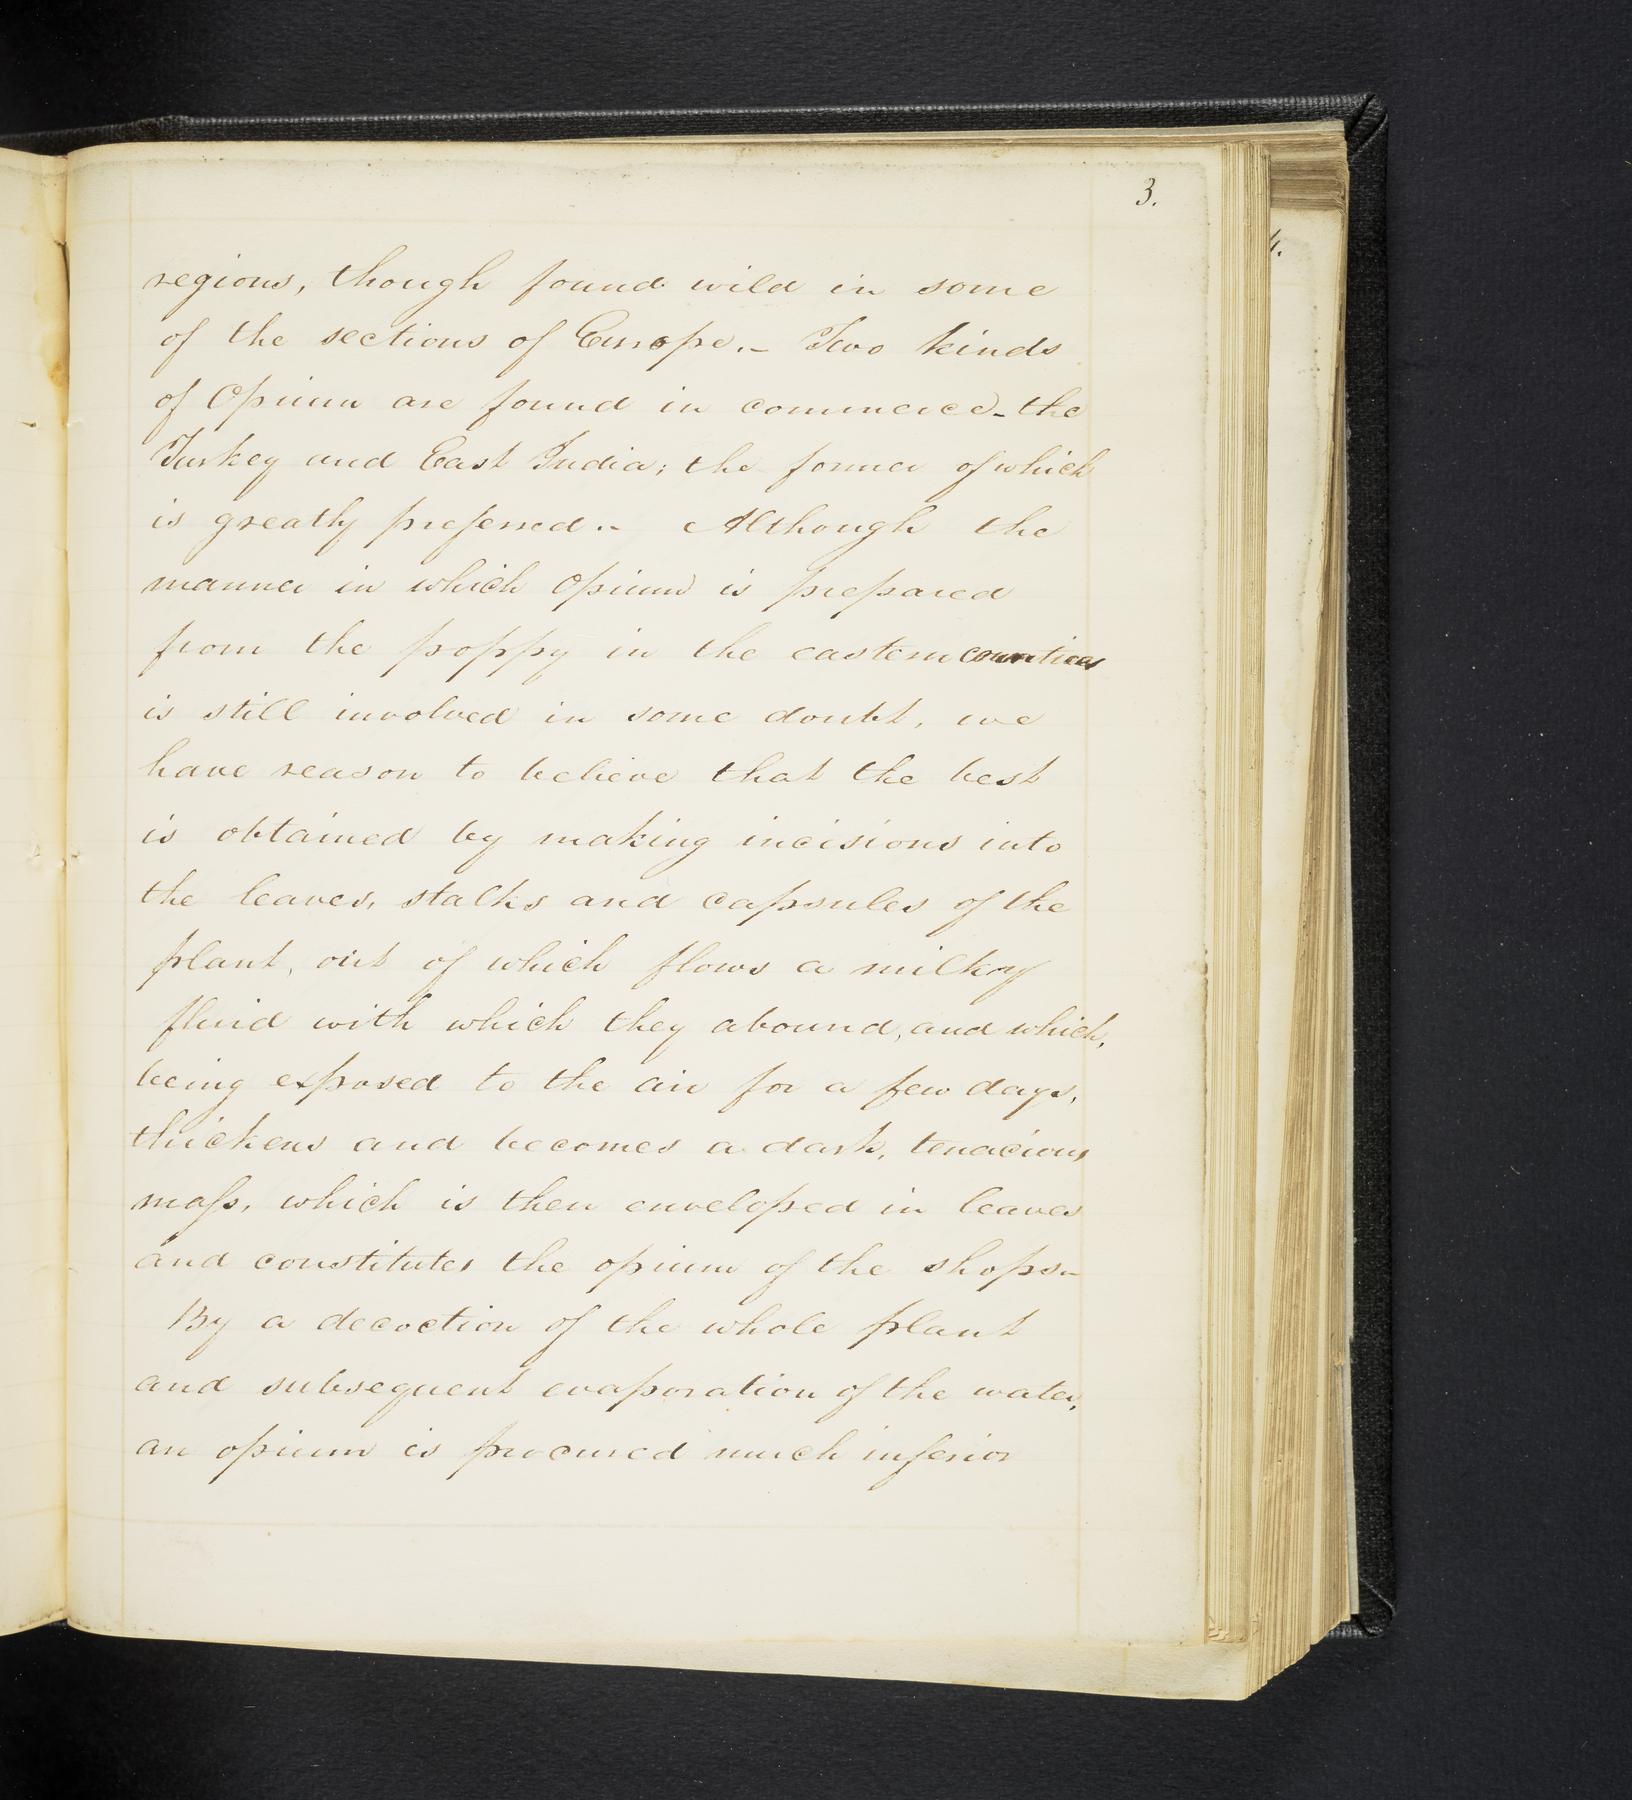 3.
4.
regions, though found wild in some
of the sections of Europe.- Two kinds
of Opium are found in commerce-the
Turkey and East India; the former of which
is greatly preferred.- Although the
manner in which Opium is prepared
from the poppy in the eastern countries
is still involved in some doubt, we
have reason to believe that the best
is obtained by making incisions into
the leaves, stalks and capsules of the
plant, out of which flows a milky
fluid with which they abound, and which,
being exposed to the air for a few days,
thickens and becomes a dark, tenacious
maſs, which is then enveloped in leaves
and constitutes the opium of the shops.-
By a decoction of the whole plant
and subsequent evaporation of the water,
an opium is procured much inferior